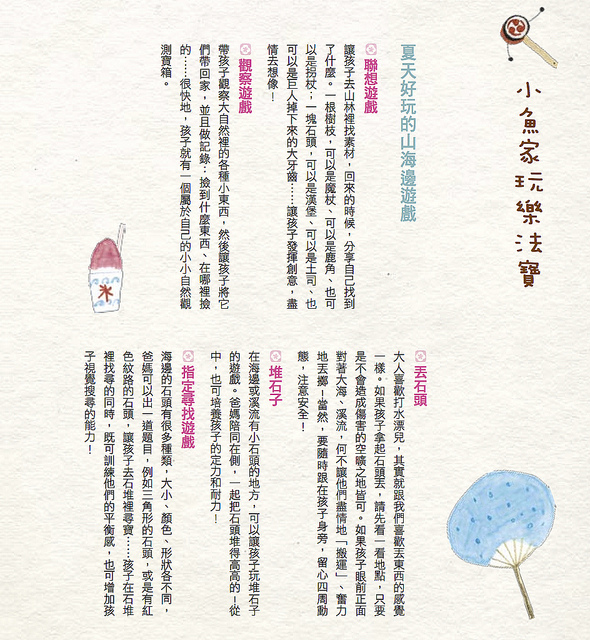 小魚家玩樂法寶
夏天好玩的山海邊遊戲
聯想遊戲
讓孩子去山林裡找素材，回來的時候，分享自己找到
了什麼。一根樹枝，可以是魔杖、可以是鹿角、也可
以是拐杖；一塊石頭，可以是漢堡、可以是土司、也
可以是巨人掉下來的大牙齒……讓孩子發揮創意，盡
情去想像！
觀察遊戲
帶孩子觀察大自然裡的各種小東西，然後讓孩子將它
們帶回家，並且做記錄：撿到什麼東西、在哪裡撿
的……很快地，孩子就有一個屬於自己的小小自然觀
測寶箱。
丟石頭
大人喜歡打水漂兒，其實就跟我們喜歡丟東西的感覺
一樣。如果孩子拿起石頭丟，請先看一看地點，只要
是不會造成傷害的空曠之地皆可。如果孩子眼前正面
對著大海、溪流，何不讓他們盡情地「搬運」、奮力
地丟擲！當然，要隨時跟在孩子身旁，留心四周動
態，注意安全！
堆石子
在海邊或溪流有小石頭的地方，可以讓孩子玩堆石子
的遊戲。爸媽陪同在側，一起把石頭堆得高高的！從
中，也可培養孩子的定力和耐力！
指定尋找遊戲
海邊的石頭有很多種類，大小、顏色、形狀各不同，
爸媽可以出一道題目，例如三角形的石頭，或是有紅
色紋路的石頭，讓孩子去石堆裡尋寶……孩子在石堆
裡找尋的同時，既可訓練他們的平衡感，也可增加孩
子視覺搜尋的能力！
氷